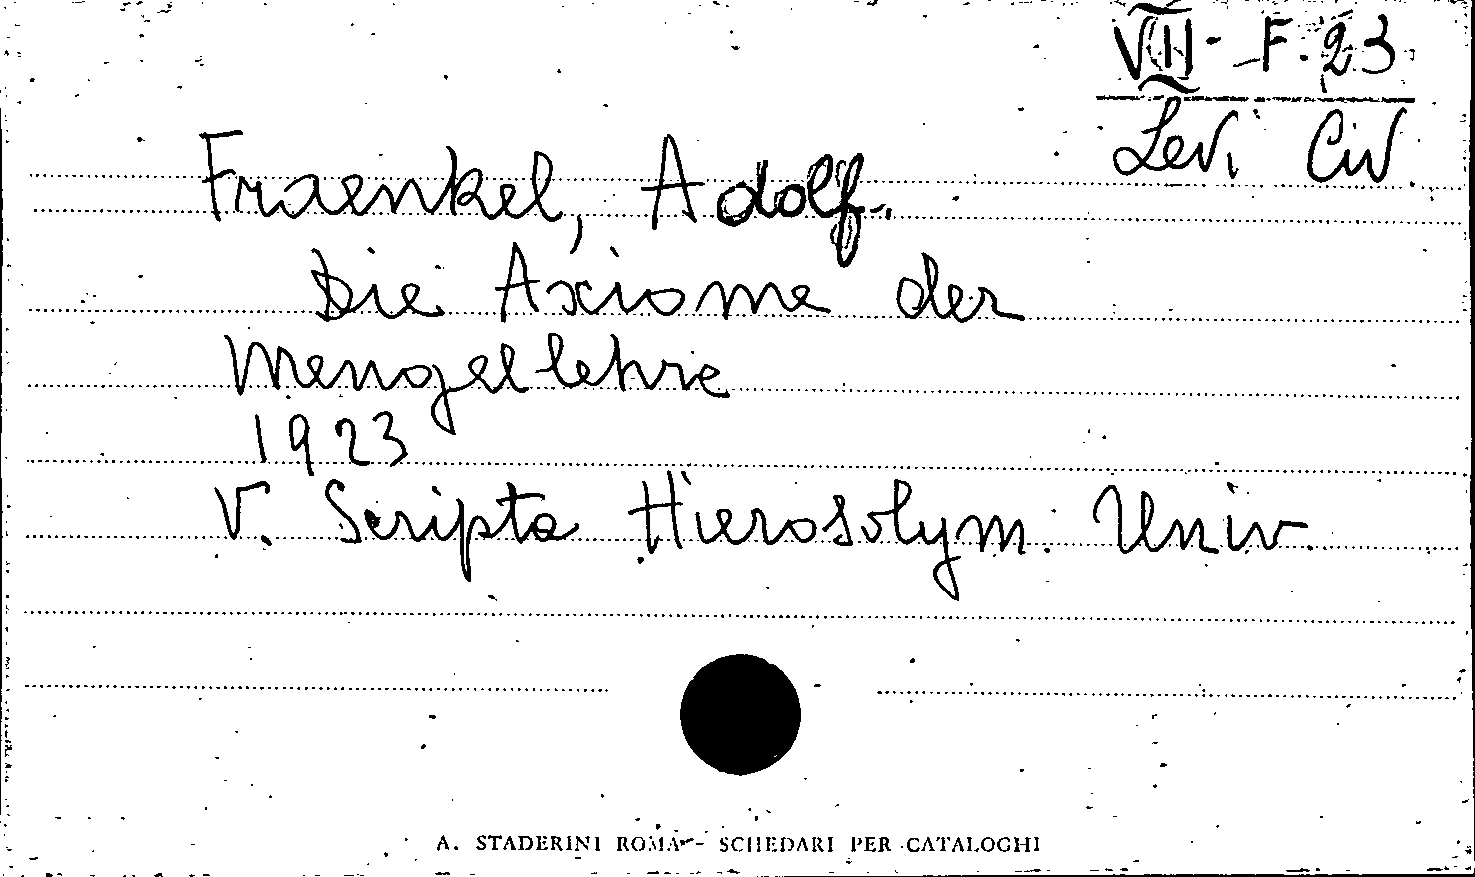 VII - F. 23
Levi Civ.
Fraenkel, Adolf.
Die Axiome der
Mengellehre
1923
V. Scripta Hierosolym. Univ.
A. STADERINI ROMA - SCHEDARI PER CATALOGHI